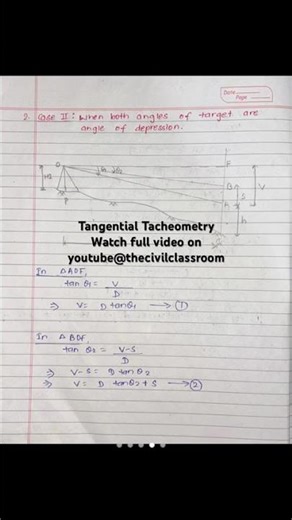 Date
Page
2. Case II: When both angles of target are
angle of depression.
O
F
B
V
S
h
P
Tangential Tacheometry
Watch full video on
youtube@thecivilclassroom
In △ AOF,
tan θ1 = V
D
⇒ V = D tanθ1 → ①
In △ BOF,
tan θ2 = V-S
D
⇒ V-S = D tanθ2
⇒ V = D tanθ2 + S → ②